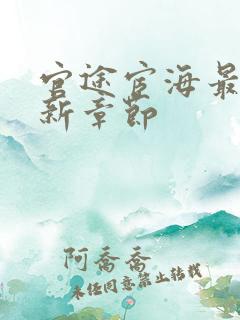 官途宦海最
新章節
阿喬喬
未经同意禁止转载